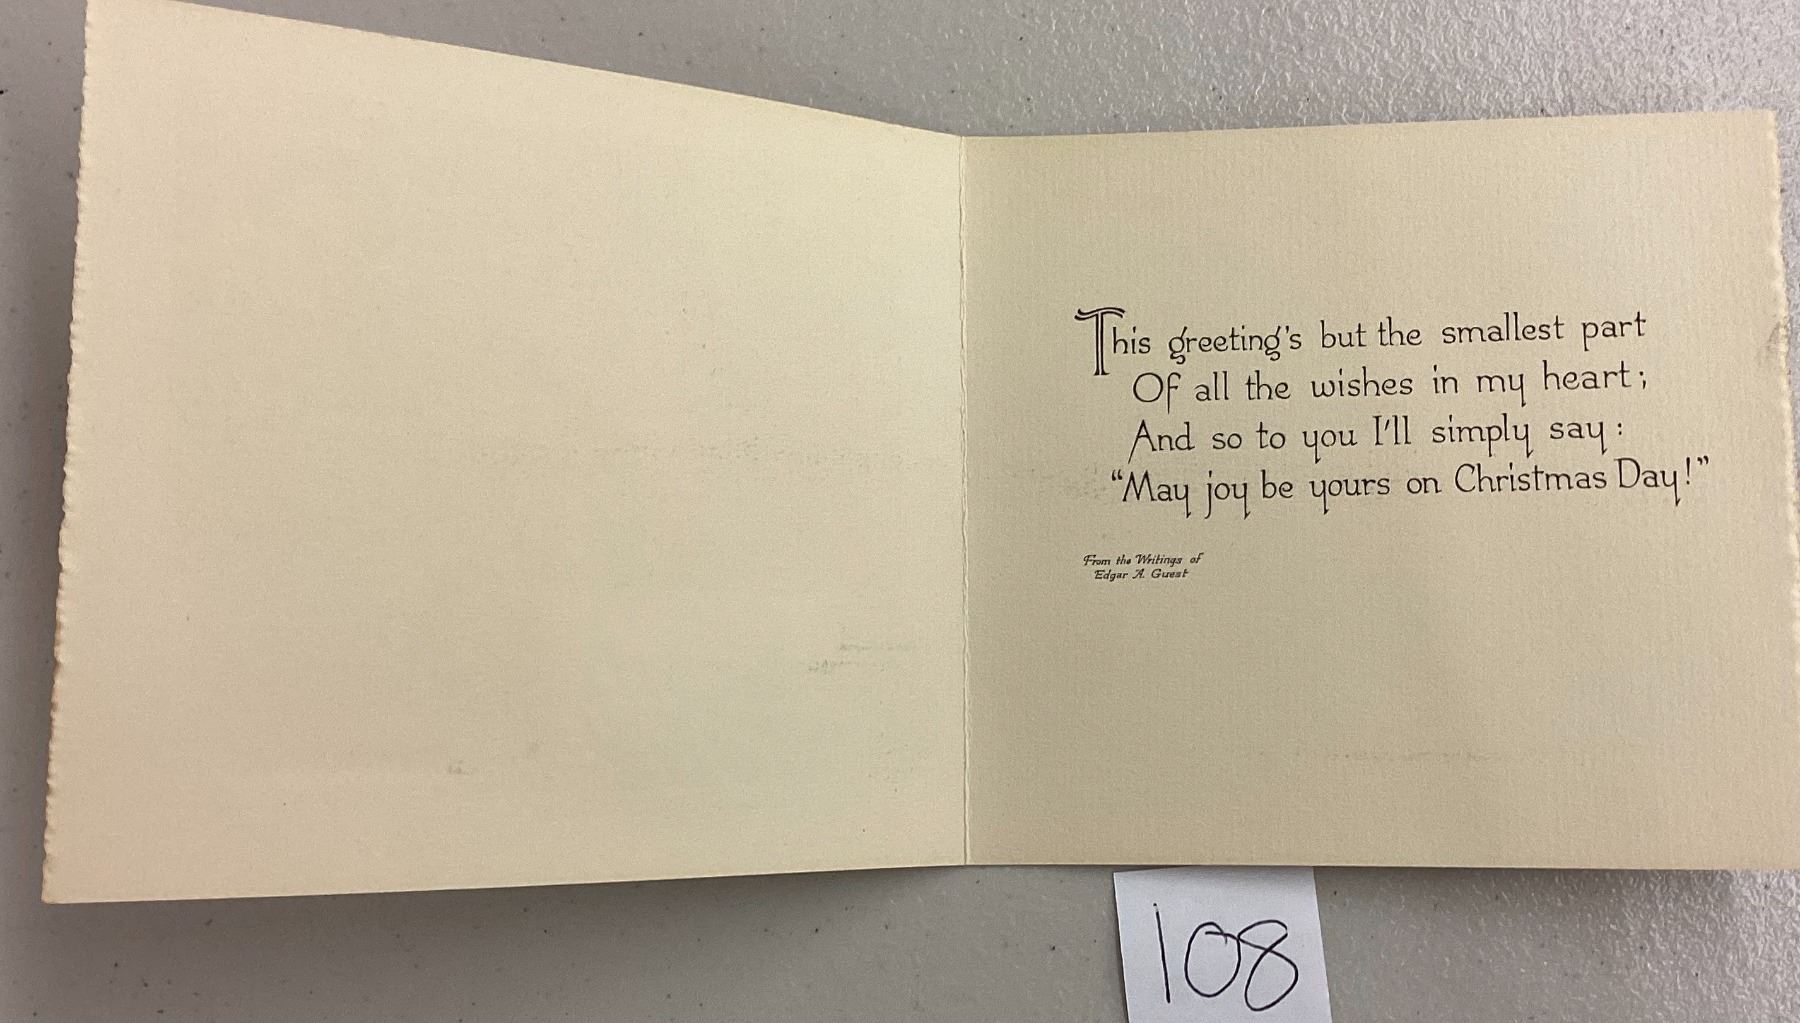 This greeting's but the smallest part
Of all the wishes in my heart;
And so to you I'll simply say:
“May joy be yours on Christmas Day!”
From the Writings of
Edgar A. Guest
108